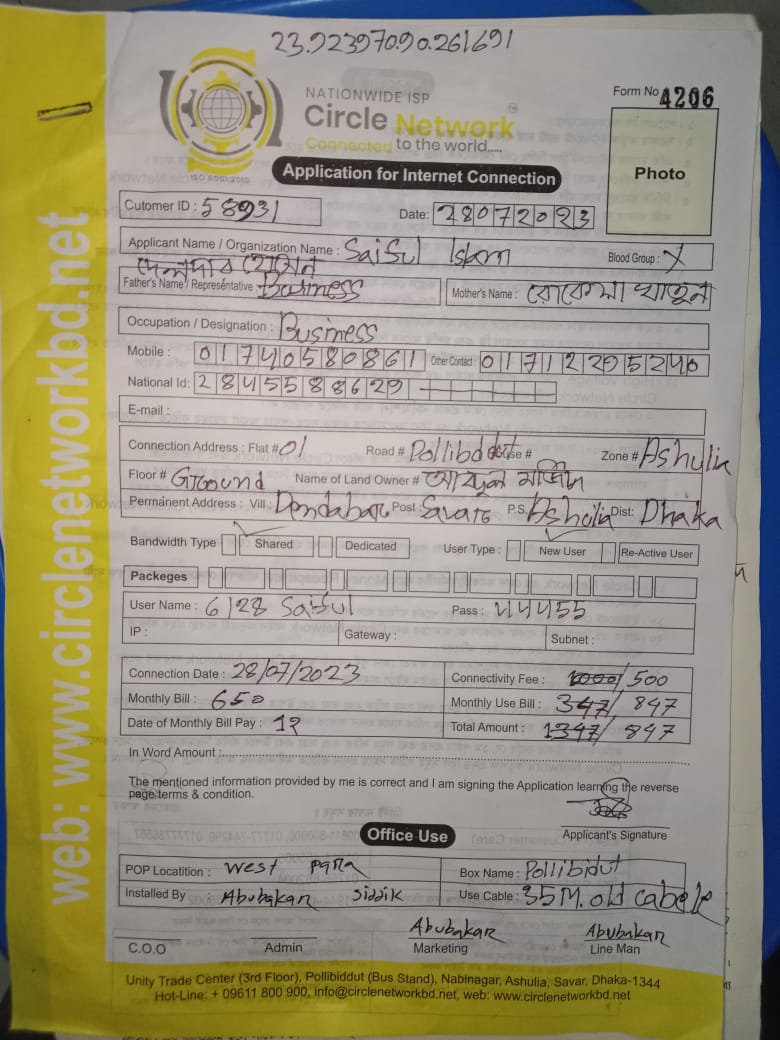 23.923970.90.261691
NATIONWIDE ISP
Circle Network
Connected to the world.....
ISO 9001:2015
Form No 4206
Photo
Application for Internet Connection
Cutomer ID : 58931
Date: 28072023
Applicant Name / Organization Name : Saiful Islam
Blood Group : X
দেলদার হোসেন
Father's Name / Representative : Business
Mother's Name : রোকেয়া খাতুন
Occupation / Designation : Business
Mobile : 01740580861 Other Contact 01712295240
National Id: 2845588629
E-mail :
Connection Address : Flat# 01 Road # Pollibddut House # Zone # Ashulia
Floor # Ground Name of Land Owner # আবদুল মজিদ
Permanent Address : Vill : Dendabar Post : Savar P.S. Ashulia Dist: Dhaka
Bandwidth Type Shared Dedicated User Type : New User Re-Active User
Packeges
User Name : 6128 Saiful Pass : 44455
IP : Gateway : Subnet :
Connection Date : 28/07/2023 Connectivity Fee : 1000/ 500
Monthly Bill : 650 Monthly Use Bill : 347/ 847
Date of Monthly Bill Pay : 12 Total Amount : 1347/ 847
In Word Amount :
The mentioned information provided by me is correct and I am signing the Application learning the reverse
page terms & condition.
Applicant's Signature
Office Use
POP Locatition : West para Box Name : Pollibidut
Installed By Abubakar Siddik Use Cable : 35M. old cabele
Abubakar Abubakar
C.O.O Admin Marketing Line Man
Unity Trade Center (3rd Floor), Pollibiddut (Bus Stand), Nabinagar, Ashulia, Savar, Dhaka-1344
Hot-Line: + 09611 800 900, info@circlenetworkbd.net, web: www.circlenetworkbd.net
web: www.circlenetworkbd.net